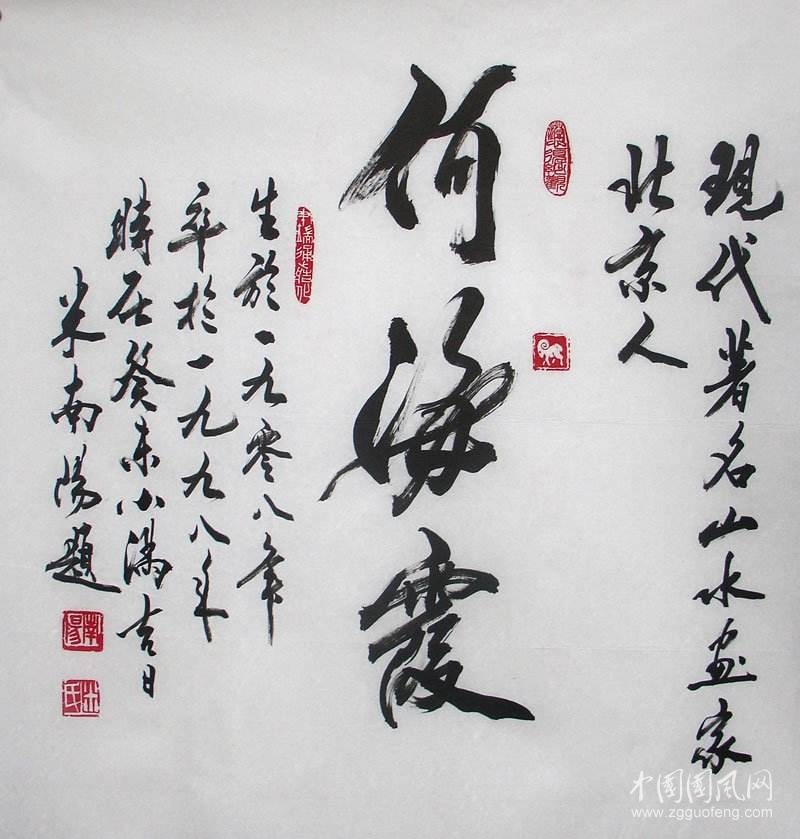 現代著名山水画家
北京人
何海霞
生於一九零八年
卒於一九九八年
時在癸未小满吉日
米南陽題
南陽
米氏
中國國风网
www.zgguofeng.com